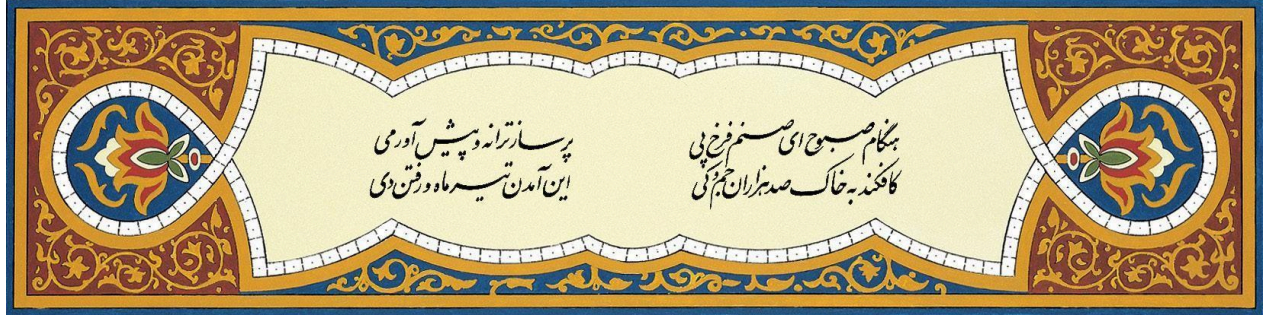 هنگام صبوح ای صنم فرخ پی
پر ساز ترانه و پیش آور می
کافکند به خاک صد هزاران جم و کی
این آمدن تیر ماه و رفتن دی